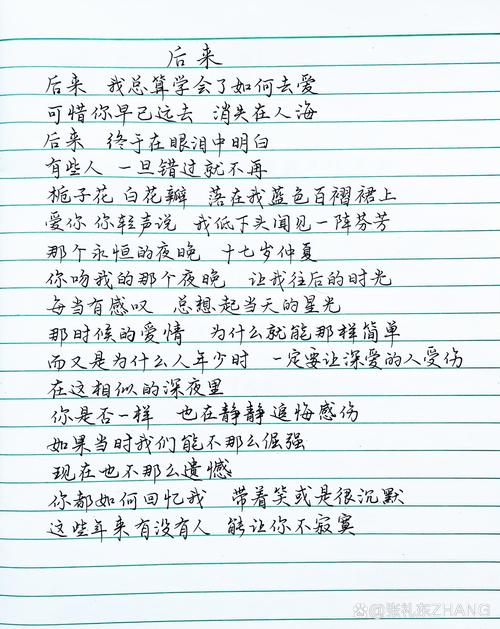 后来
后来 我总算学会了如何去爱
可惜你早已远去 消失在人海
后来 终于在眼泪中明白
有些人 一旦错过就不再
栀子花 白花瓣 落在我蓝色百褶裙上
爱你 你轻声说 我低下头闻见一阵芬芳
那个永恒的夜晚 十七岁仲夏
你吻我的那个夜晚 让我往后的时光
每当有感叹 总想起当天的星光
那时候的爱情 为什么就能那样简单
而又是为什么人年少时 一定要让深爱的人受伤
在这相似的深夜里
你是否一样 也在静静追悔感伤
如果当时我们能不那么倔强
现在也不那么遗憾
你都如何回忆我 带着笑或是很沉默
这些年来有没有人 能让你不寂寞
张礼东ZHANG